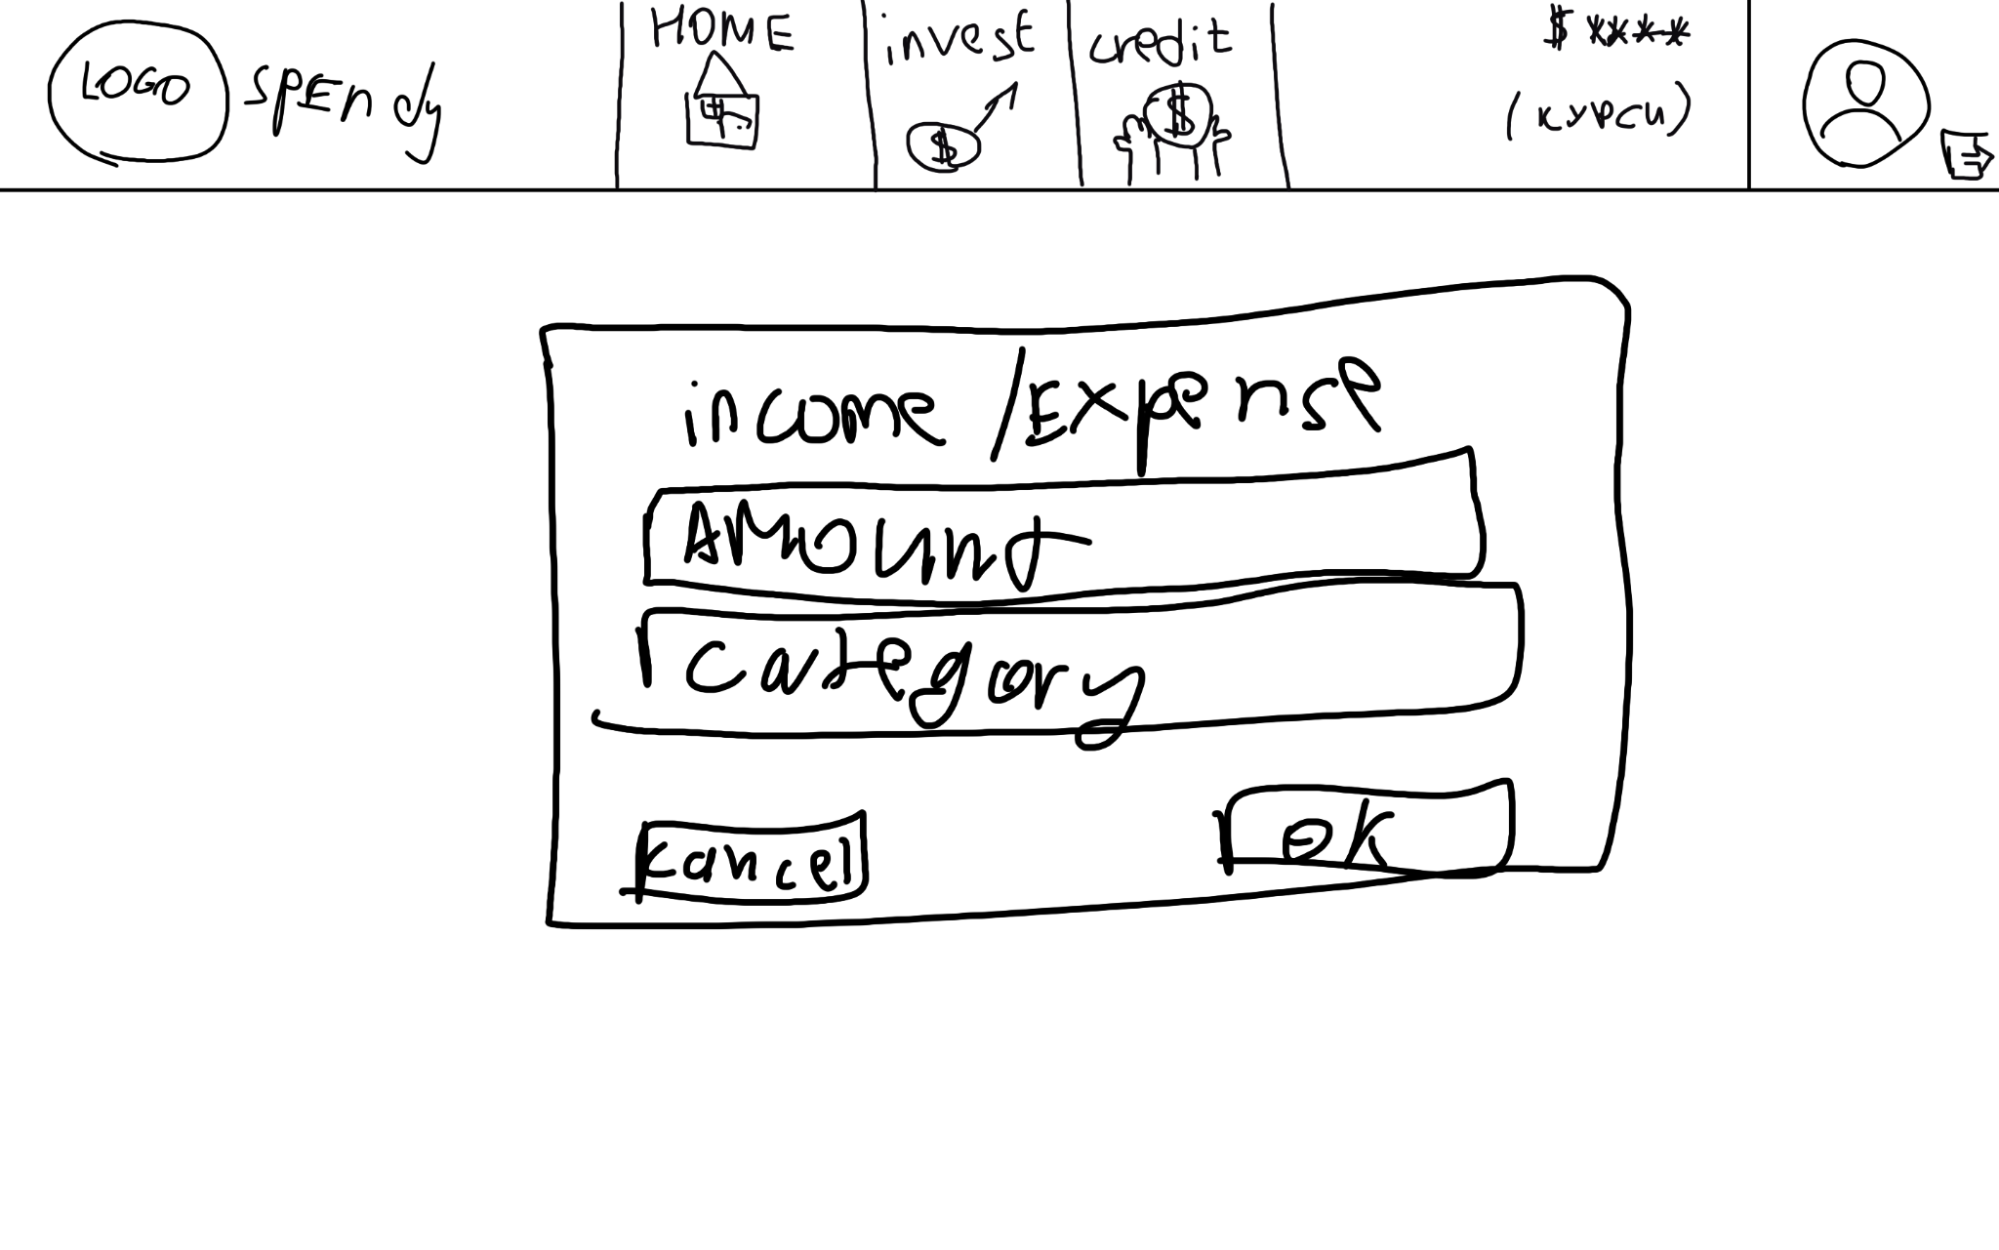 LOGO
SPEndy
HOME
invest
credit
$ ****
(курси)
$
$
income / Expense
AMOUnt
category
cancel
OK